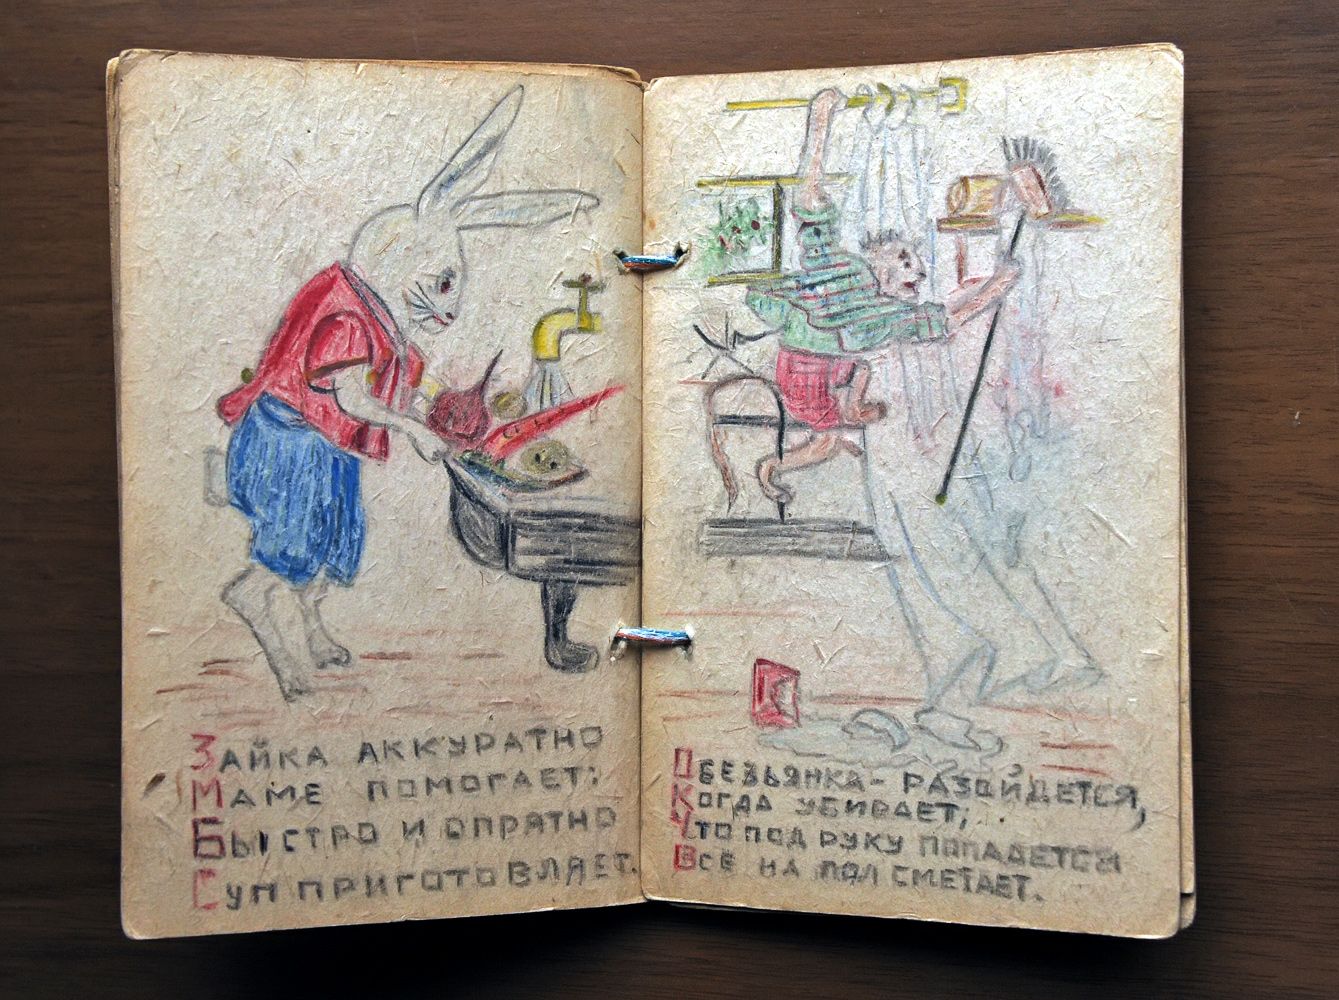 Зайка аккуратно
Маме помогает;
Быстро и опрятно
Суп приготовляет.
Обезьянка - разойдется,
Когда убирает;
Что под руку попадется
Всё на пол сметает.